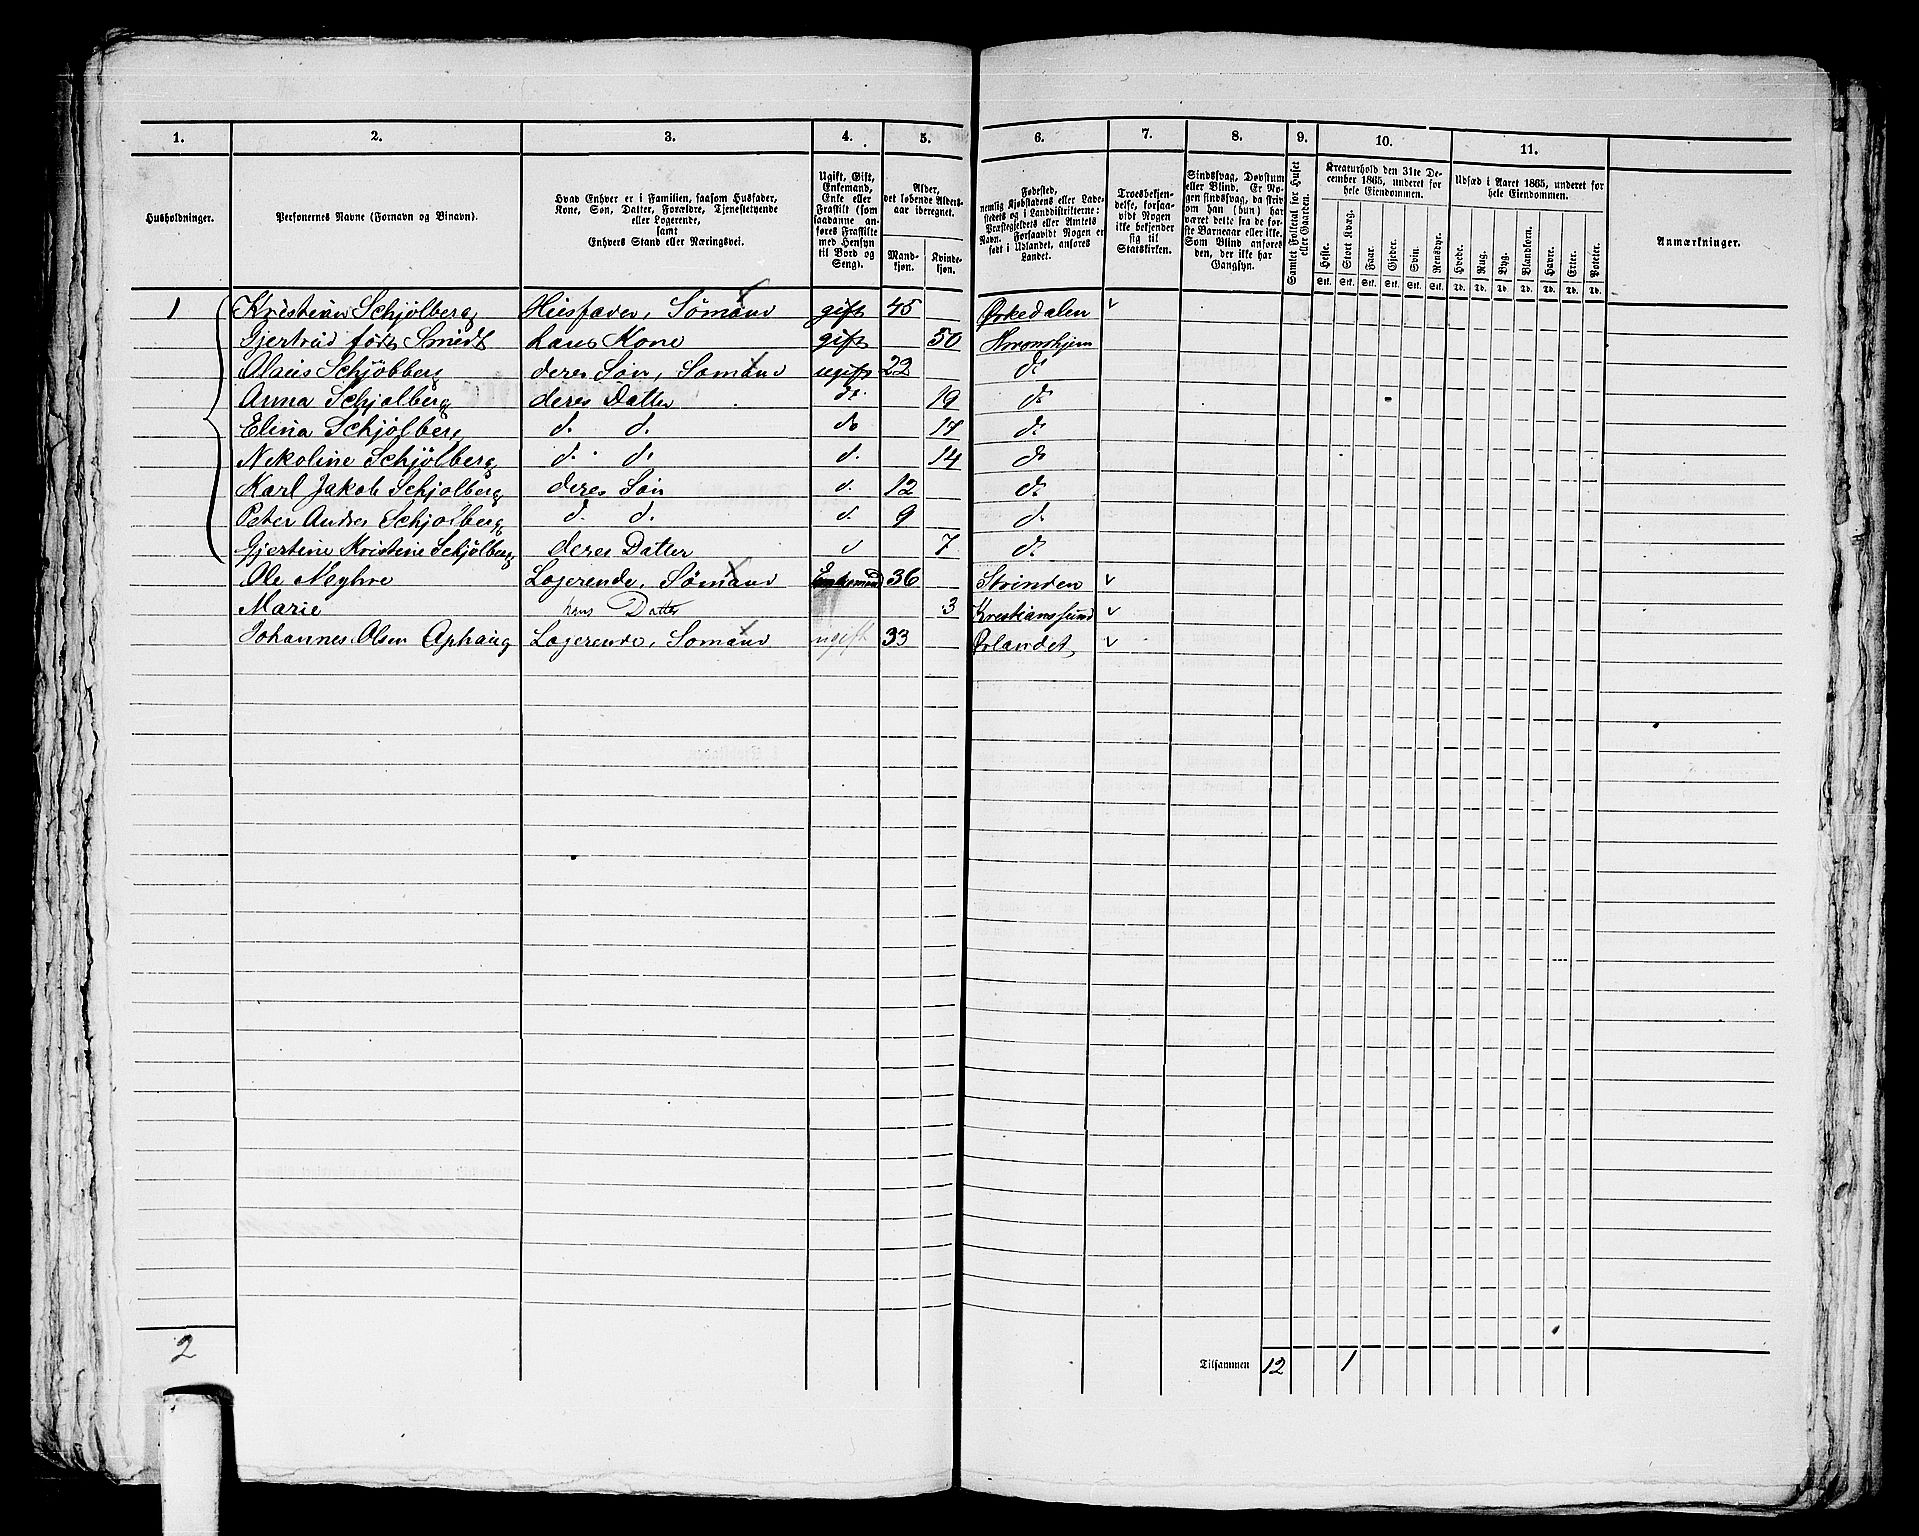 1. 2. 3. 4. 5. 6. 7. 8. 9. 10. 11.
Husholdninger.
Personernes Navne (Fornavn og Binavn).
Hvad Enhver er i Familien, saasom Husfader, Kone, Søn, Datter, Forældre, Tjenestetyende eller Logerende, samt Enhvers Stand eller Næringsvei.
Ugift, Gift, Enkemand, Enke eller Fraskilt (som saadanne anføres Fraskilte med Hensyn til Bord og Seng).
Alder, det løbende Aldersaar iberegnet.
Mandkjøn. Kvindekjøn.
Fødested, nemlig Kjøbstadens eller Ladestedets og i Landdistrikterne: Præstegjeldets eller Amtets Navn. Forsaavidt Nogen er født i Udlandet, anføres Landet.
Troesbekjendelse, forsaavidt Nogen ikke bekjender sig til Statskirken.
Sindssvag, Døvstum eller Blind. Er Nogen sindssvag, da skriv om han (hun) har været dette fra de første Barneaar eller ikke. Som Blind anføres den, der ikke har Gangsyn.
Samlet Folketal for Huset eller Gaarden.
Kreaturhold den 31te December 1865, underet for hele Eiendommen.
Heste. Stort Kvæg. Faar. Gjeder. Svin. Rensdyr.
Stk. Stk. Stk. Stk. Stk. Stk.
Udsæd i Aaret 1865, underet for hele Eiendommen.
Hvede. Rug. Byg. Blandkorn. Havre. Erter. Poteter.
Td. Td. Td. Td. Td. Td. Td.
Anmærkninger.
1 Kristian Schjølberg Husfader, Sømand gift 45 Ørkedalen v
Gjertrud født Smidt hans Kone gift 50 Thronhjem
Olaus Schjøbberg deres Søn, Sømand ugift 22 do
Anna Schjølberg deres Datter do 19 do
Elina Schjølberg d. d. do 17 do
Nekoline Schjølberg d. d. d. 14 do
Karl Jakob Schjølberg deres Søn d. 12 do
Peter Andres Schjolberg d. d. d. 9 d.
Gjertine Kristine Schjølberg deres Datter d 7 d.
Ole Logerende, Sømand Enkemand 36 Strinden v
Marie hans Datter 3 Kristianssund v
Johannes Olsen Ophaug Logerende, Sømand ugift 33 Ørlandet v
2
Tilsammen 12 1